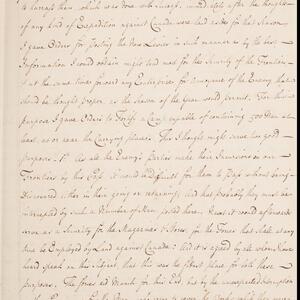 to Corrupt them, which was done who success, immediately after the thoughts
of any kind of Expedition against Canada were laid aside for the Season
I gave Orders for Posting the New Levies in such manner as by the best
Information I could obtain might tend most for the Security of the Frontiers
& at the same time forward any Enterprise for annoyance of the Enemy that
should be thought proper as the Season of the year would admit. For this
purpose I gave Orders to Fortify a Camp capable of containing 500 Men at
least, at or near the Carrying place. This I thought might serve two good
purposes. 1st As all the Enemy's Parties make their Incursions on our
Frontiers by this Pass it would be difficult for them to Pass without being
Discovered either in their going or returning, and that probably they must be
intercepted by such a Number of Men posted there. Next it would afterwards
serve as a Security for the Magazines & Stores for the Forces that shall at any
time be Employed by Land against Canada: And it is agreed by all whom I have
heard speak on this Subject that this was the fittest place for both these
purposes. The Forces did March for this End, but by the unexpected